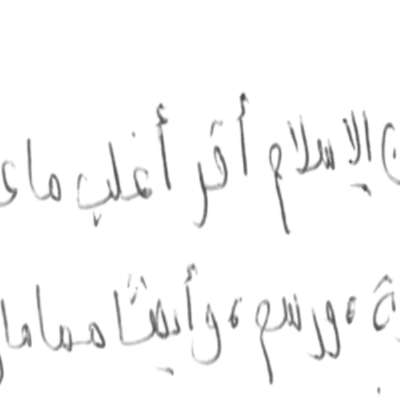 الإسلام أقر أغلب ما
ة، ورسم، وأيضًا مما